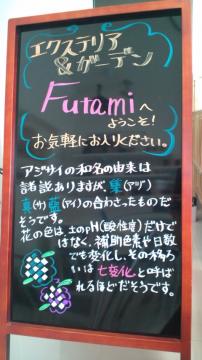 エクステリア
&ガーデン
Futamiへ
ようこそ!
お気軽にお入りください。
アジサイの和名の由来は
諸説ありますが、集(アツ)
真(サ)藍(アイ)の合わさったものだ
そうです。
花の色は、土のpH(酸性度)だけで
はなく、補助色素や日数
でも変化し、その様ろ
いは七変化と呼ば
れるほどだそうです。